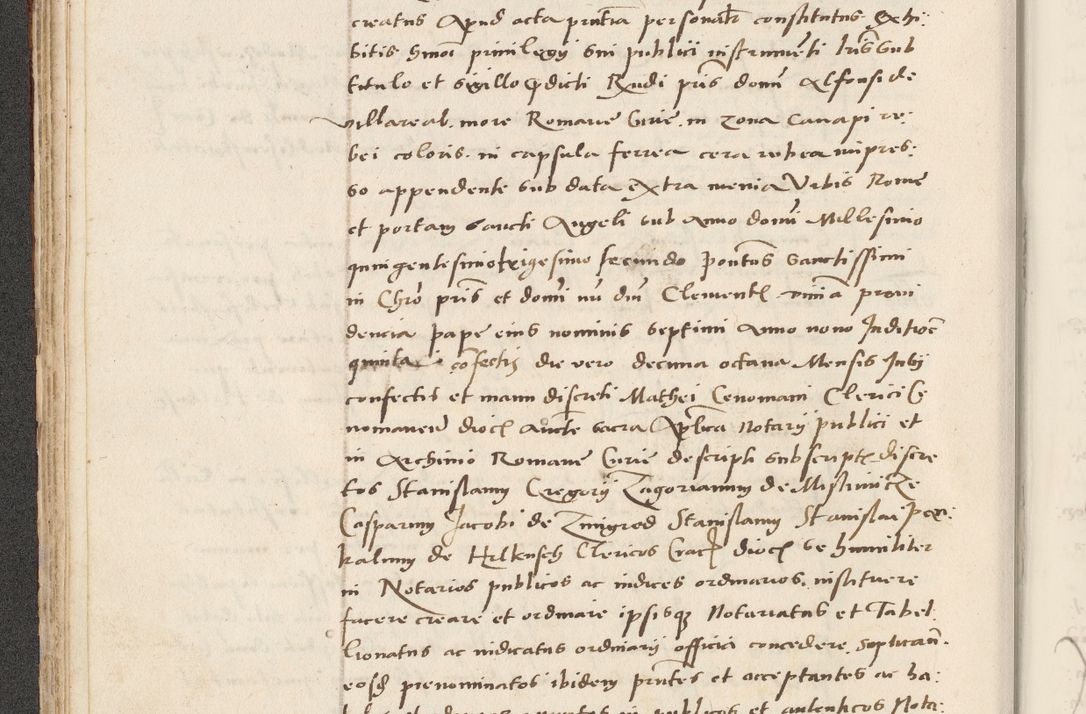 creatus Apud acta pntia personalr constitutus Exhi:
bitis hmoi privilegij sui publici instrumenti lris sub
titulo et sigillo pdicti Rndi pris domi Alfonsi de
villareal. more Romane Curie. in zona Canapi ru:
bei coloris. in capsula ferrea cera rubea impres:
so appendente sub data Extra menia Urbis Rome
et portam sancti Angeli sub Anno domi Millesimo
quingentesimotrigesimo secundo Pontus Sanctissimi
in Chro pris et domi nri dni Clementis divina provi
dencia pape eius nominis septimi Anno nono Inditioe
quinta confectis die vero decima octava Mensis Julij
confectis et manu discreti Mathei Cenomani Clerici Ce
nomanen dioc aucte sacra Aplica Notarij publici et
in Archivio Romane Curie descripti subscriptis discre
tos Stanislaum Gregorij Zagorianum de Mislimicze
Casparum Jacobi de Zmigrod Stanislaum Stanislai Pex:
kalum de Helkusch Clericos Crac dioc se humiliter
in Notarios publicos ac iudices ordinarios instituere
facere creare et ordinare ipsisque Notariatus et Tabel
lionatus ac iudicatus ordinarij officia concedere suplican.
eosd prenominatos ibidem pntes et acceptantes ac ha:
publicos et autenticos Nota: